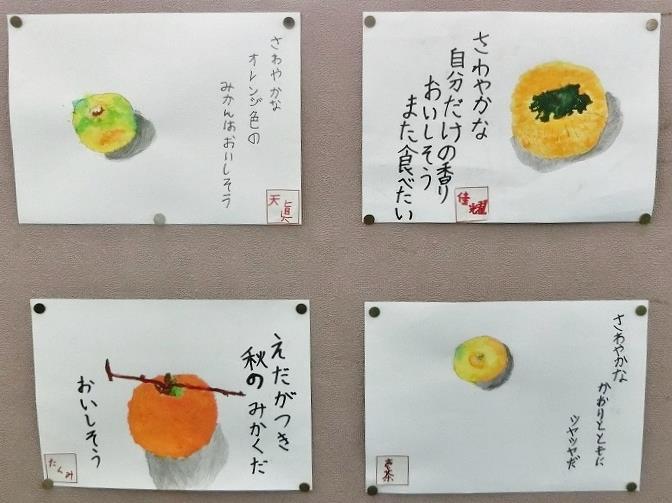 さわやかな
オレンジ色の
みかんはおいしそう
天貞
さわやかな
自分だけの香り
おいしそう
また食べたい
佳耀
えだがつき
秋のみかくだ
おいしそう
たくみ
さわやかな
かおりとともに
ツヤツヤだ